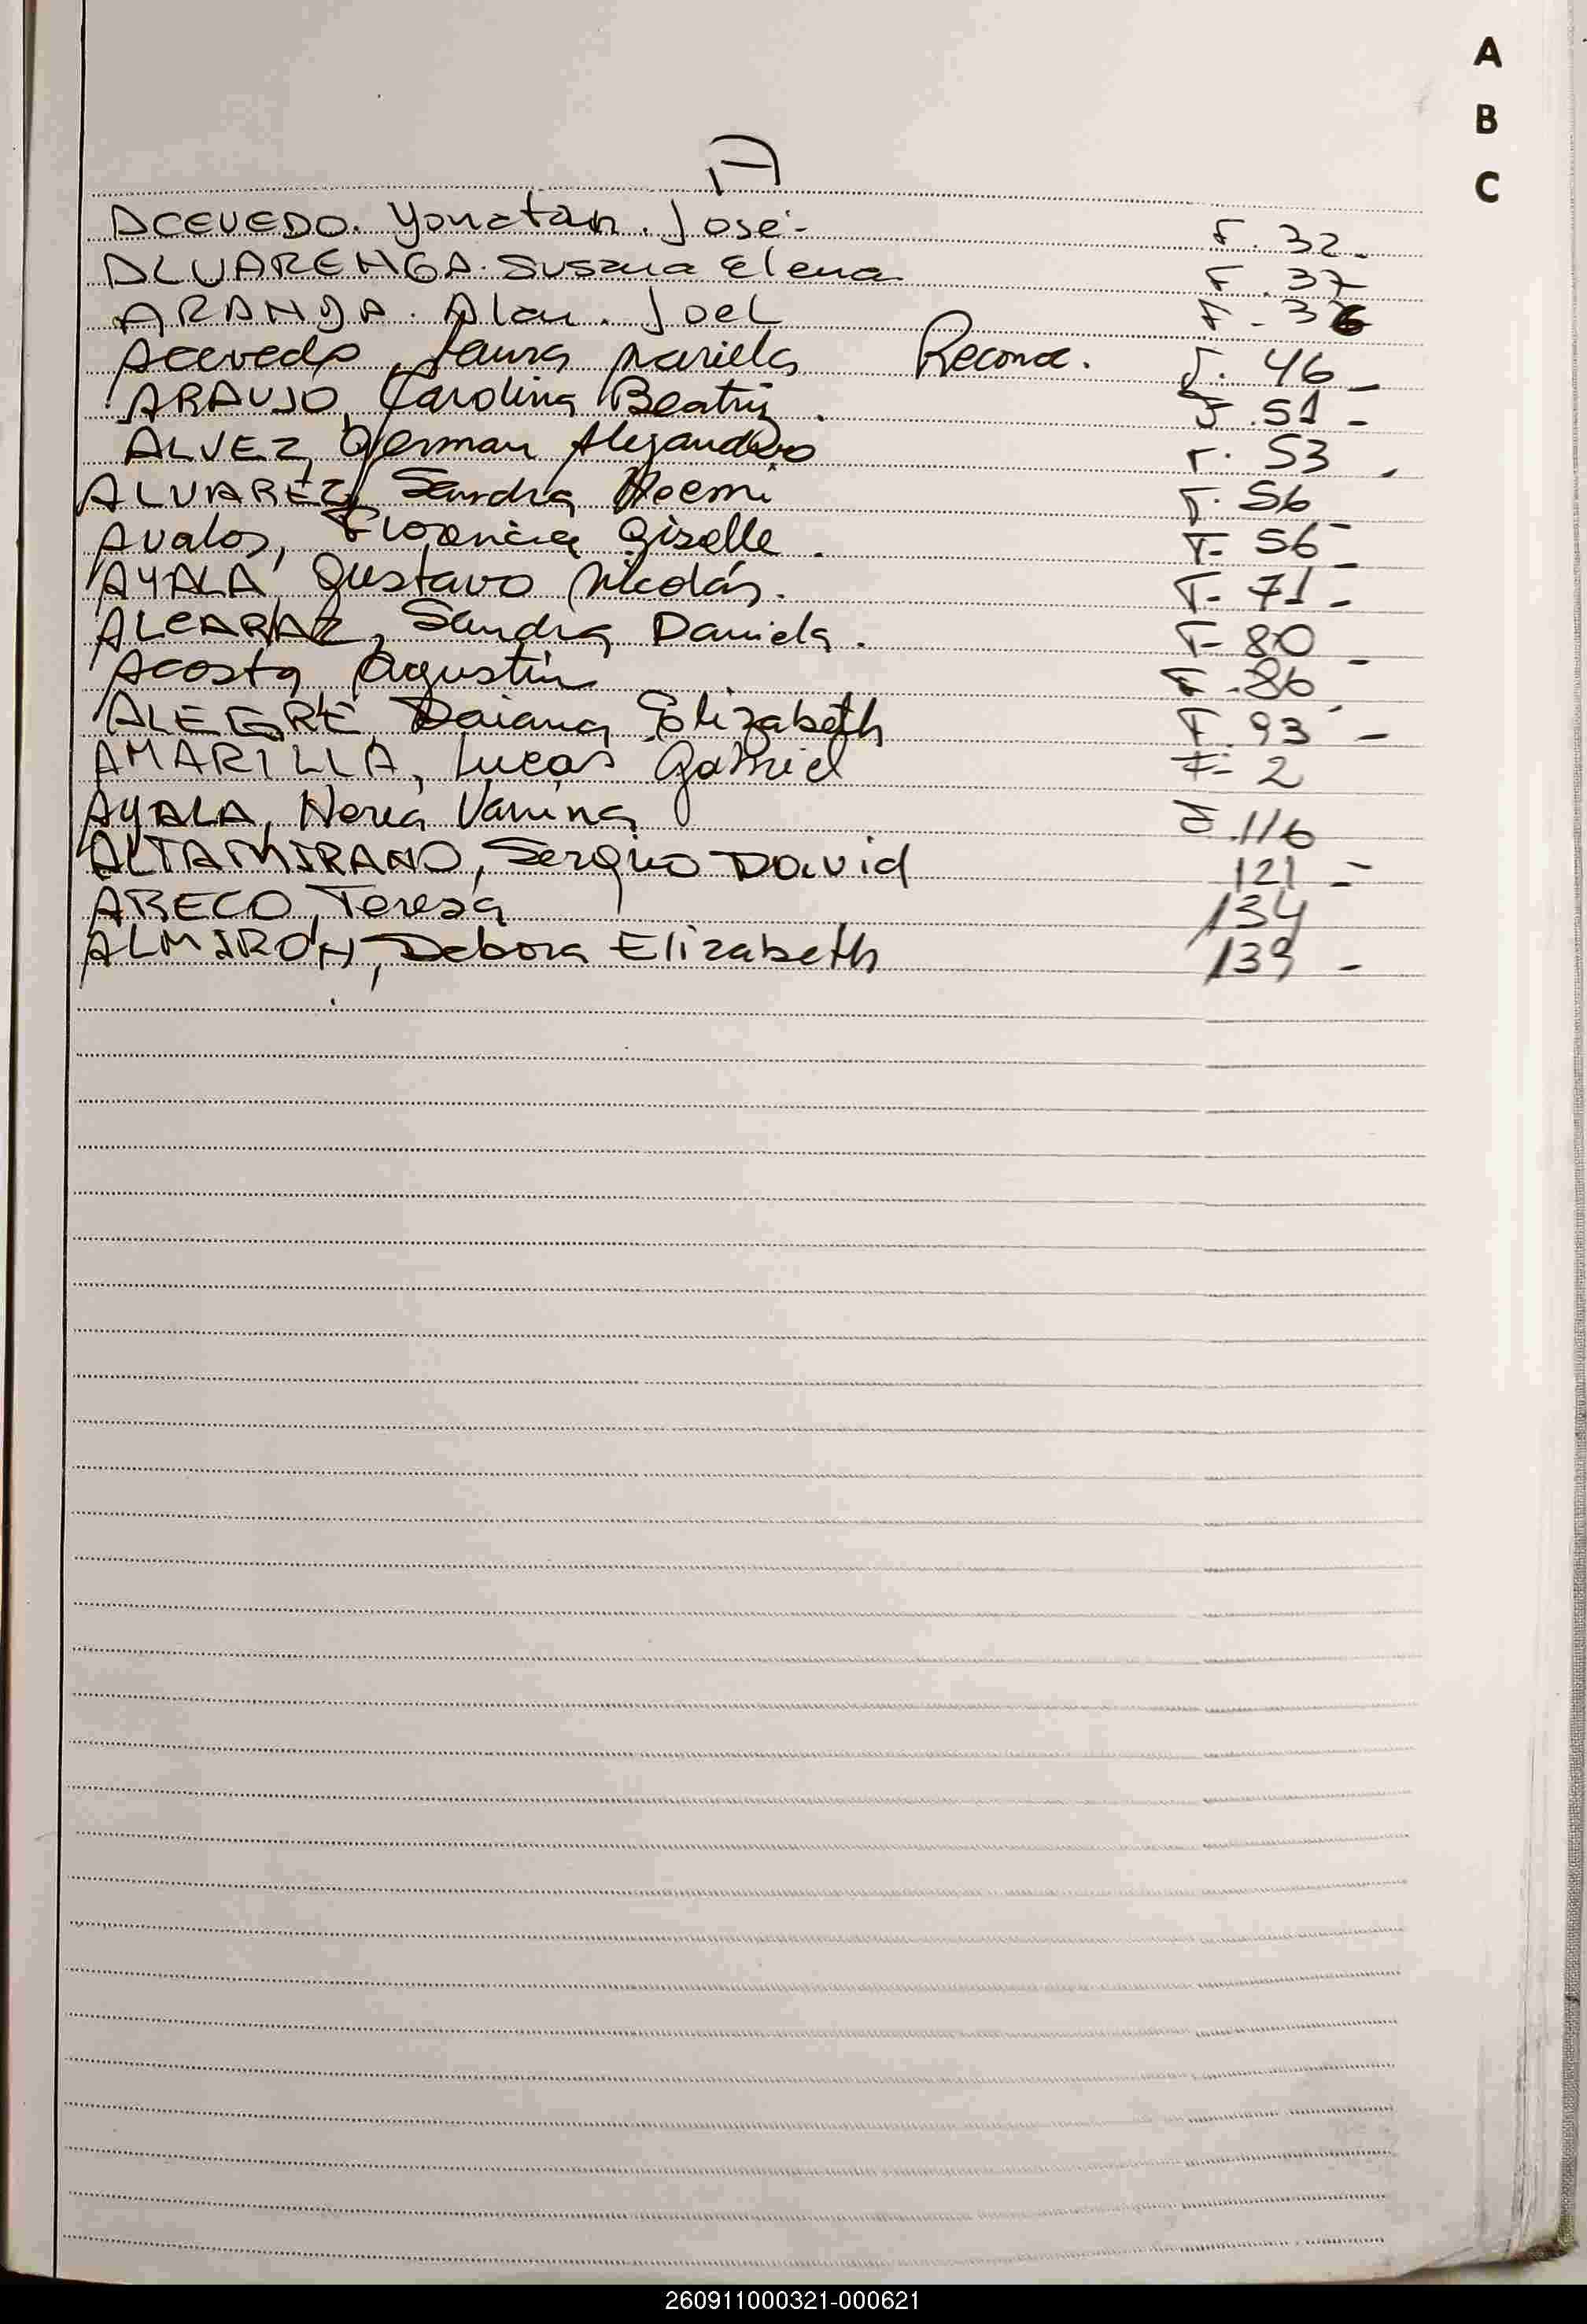 A
B
C
A
ACEVEDO. Yonatan. José- F. 32-
ALVARENGA. Susana Elena F. 37
ARANDA. Alan. Joel F. 36
Acevedo, Laura Mariela Reconoc. F. 46-
ARAUJO, Carolina Beatriz. F. 51-
ALVEZ, German Alejandro F. 53-
ALVAREZ, Sandra Noemi F. 56-
Avalos, Florencia Giselle. F- 56-
AYALA, Gustavo Nicolás. F- 71-
ALCARAZ, Sandra Daniela. F- 80-
Acosta Agustín F. 86-
ALEGRE, Daiana Elizabeth F. 93-
AMARILLA, Lucas Gabriel F- 2
AYALA, Nerea Vanina F. 116
ALTAMIRANO, Sergio David 121-
ARECO, Teresa 134
ALMIRON, Debora Elizabeth 139-
260911000321-000621